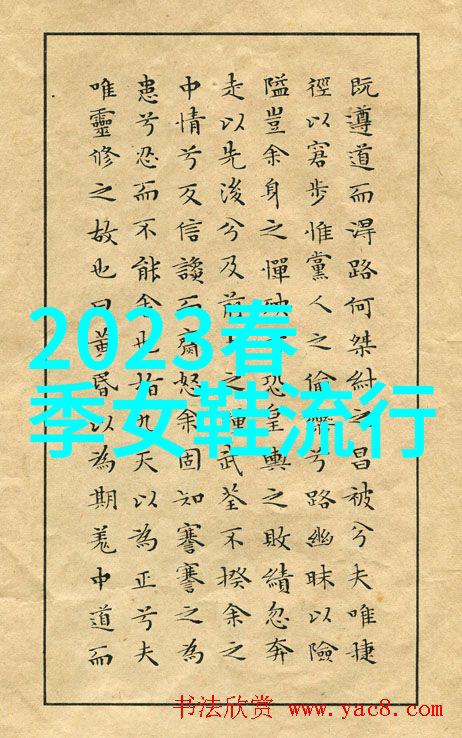 既遵道而淂路何桀紂之昌被兮夫唯捷
徑以窘步惟黨人之偷樂兮路幽昧以險
隘豈余身之憚殃恐皇輿之敗績忽奔
走以先後兮及前之踵武荃不揆余之
中情兮反信讒而齌怒余固知謇謇之為
患兮忍而不能舍也指九天以為正兮夫
唯靈修之故也曰黃昏以為期羌中道而
2023春
季女鞋流行
书法欣赏 www.yac8.com